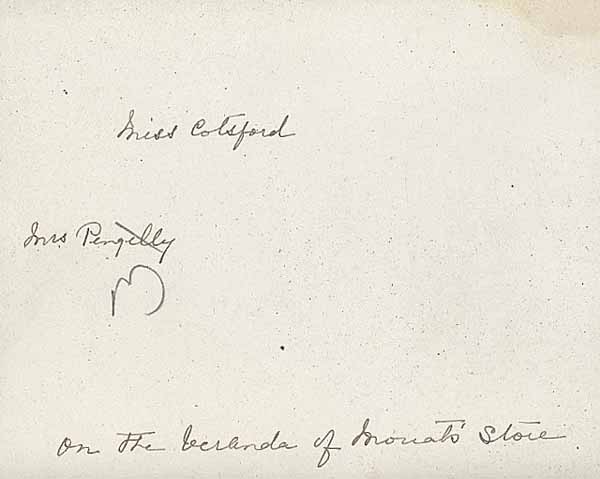 Miss Cotsford
Mrs Pengelly
3
On The Veranda of Mouat's Store